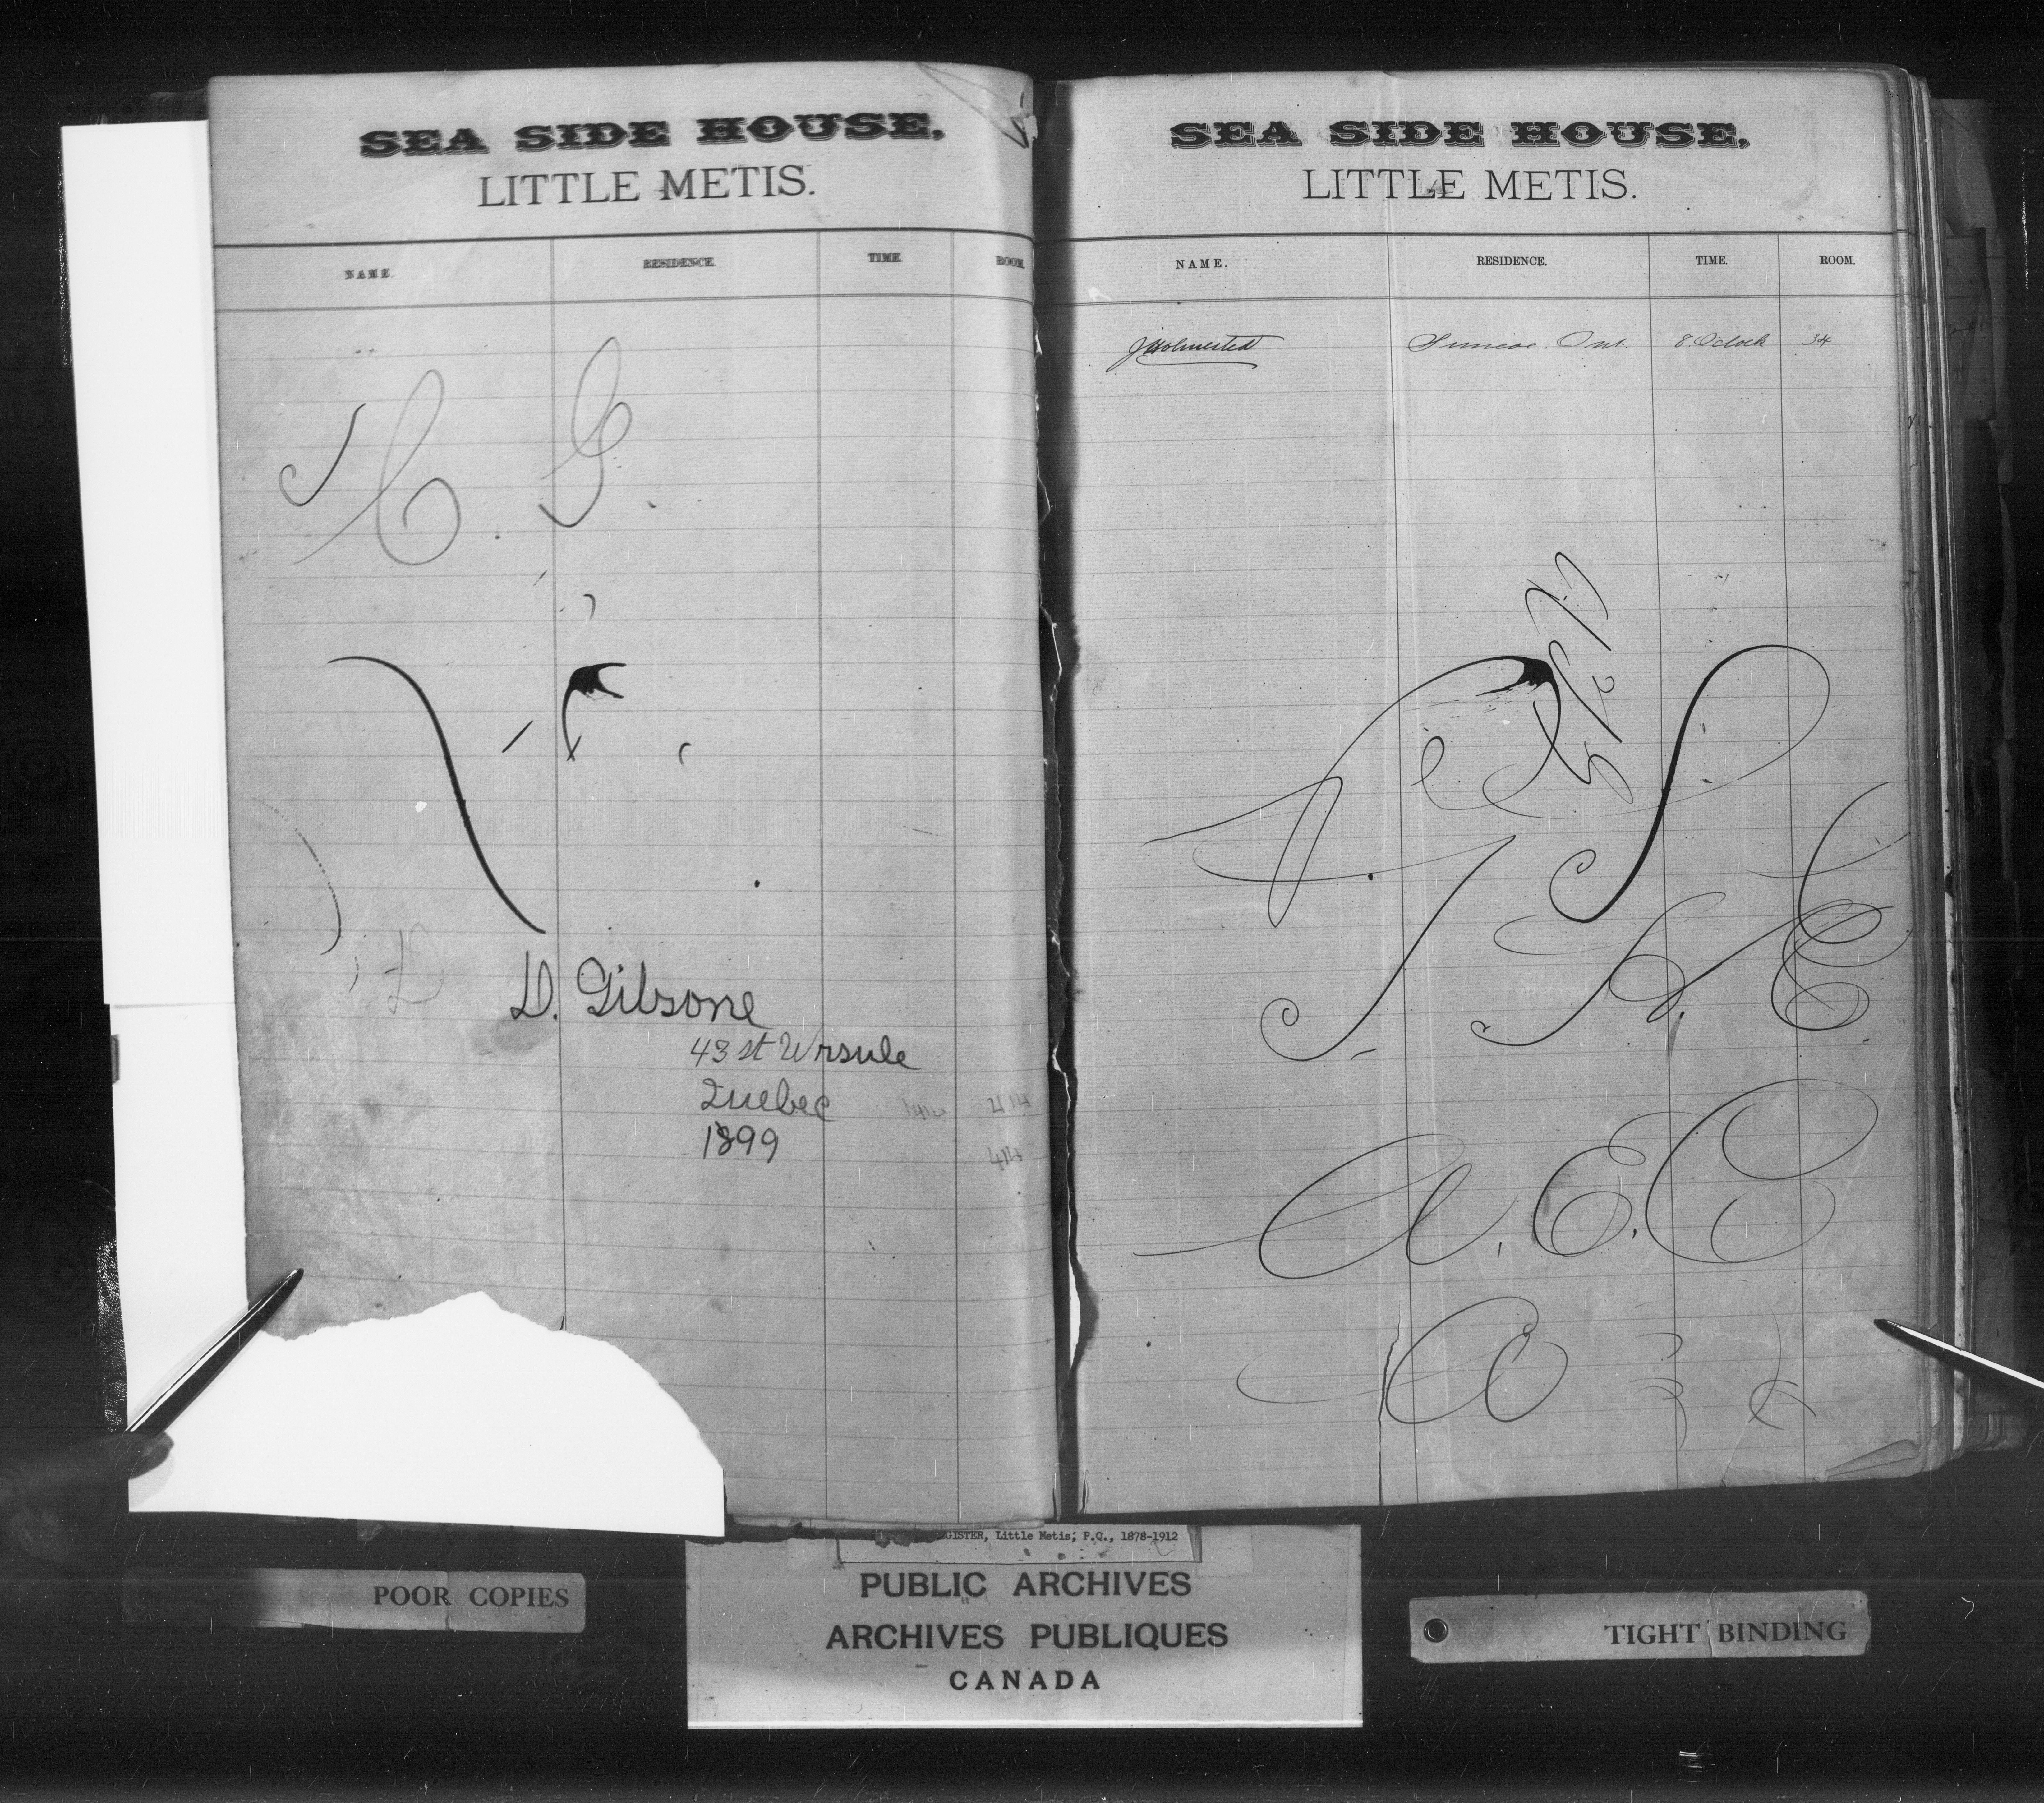 SEA SIDE HOUSE,
LITTLE METIS.
NAME. RESIDENCE. TIME. ROOM.
C. G.
D. Gibsone
43 st Ursule
Quebec
1899
414
SEA SIDE HOUSE,
LITTLE METIS.
NAME. RESIDENCE. TIME. ROOM.
Simcoe. Ont. 8 Oclock 34
A. E. C
GISTER, Little Metis; P.Q., 1878-1912
PUBLIC ARCHIVES
ARCHIVES PUBLIQUES
CANADA
POOR COPIES
TIGHT BINDING